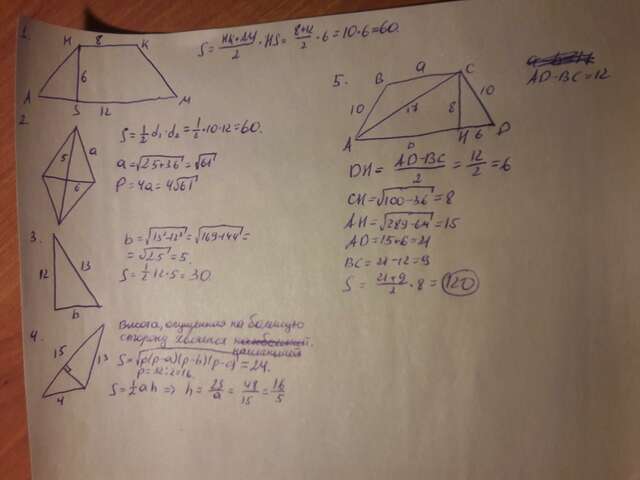 1.
H 8 K
6
A S 12 M
S = (HK+AM)/2 · HS = (8+12)/2 · 6 = 10·6 = 60.
2.
5 a
6
S = 1/2 d₁·d₂ = 1/2·10·12 = 60.
a = √(25+36) = √61
P = 4a = 4√61
3.
12 13
b
b = √(13²-12²) = √(169-144) =
= √25 = 5.
S = 1/2·12·5 = 30.
4.
15 13
4
Высота, опущенная на большую
сторону является
наименьшей
S = √(p(p-a)(p-b)(p-c)) = 24.
p = 32:2=16.
S = 1/2 a h ⇒ h = 2S/a = 48/15 = 16/5
5.
B a C
10 17 8 10
A H 6 D
AD-BC=12
DH = (AD-BC)/2 = 12/2 = 6
CH = √(100-36) = 8
AH = √(289-64) = 15
AD = 15+6 = 21
BC = 21-12 = 9
S = (21+9)/2 · 8 = 120